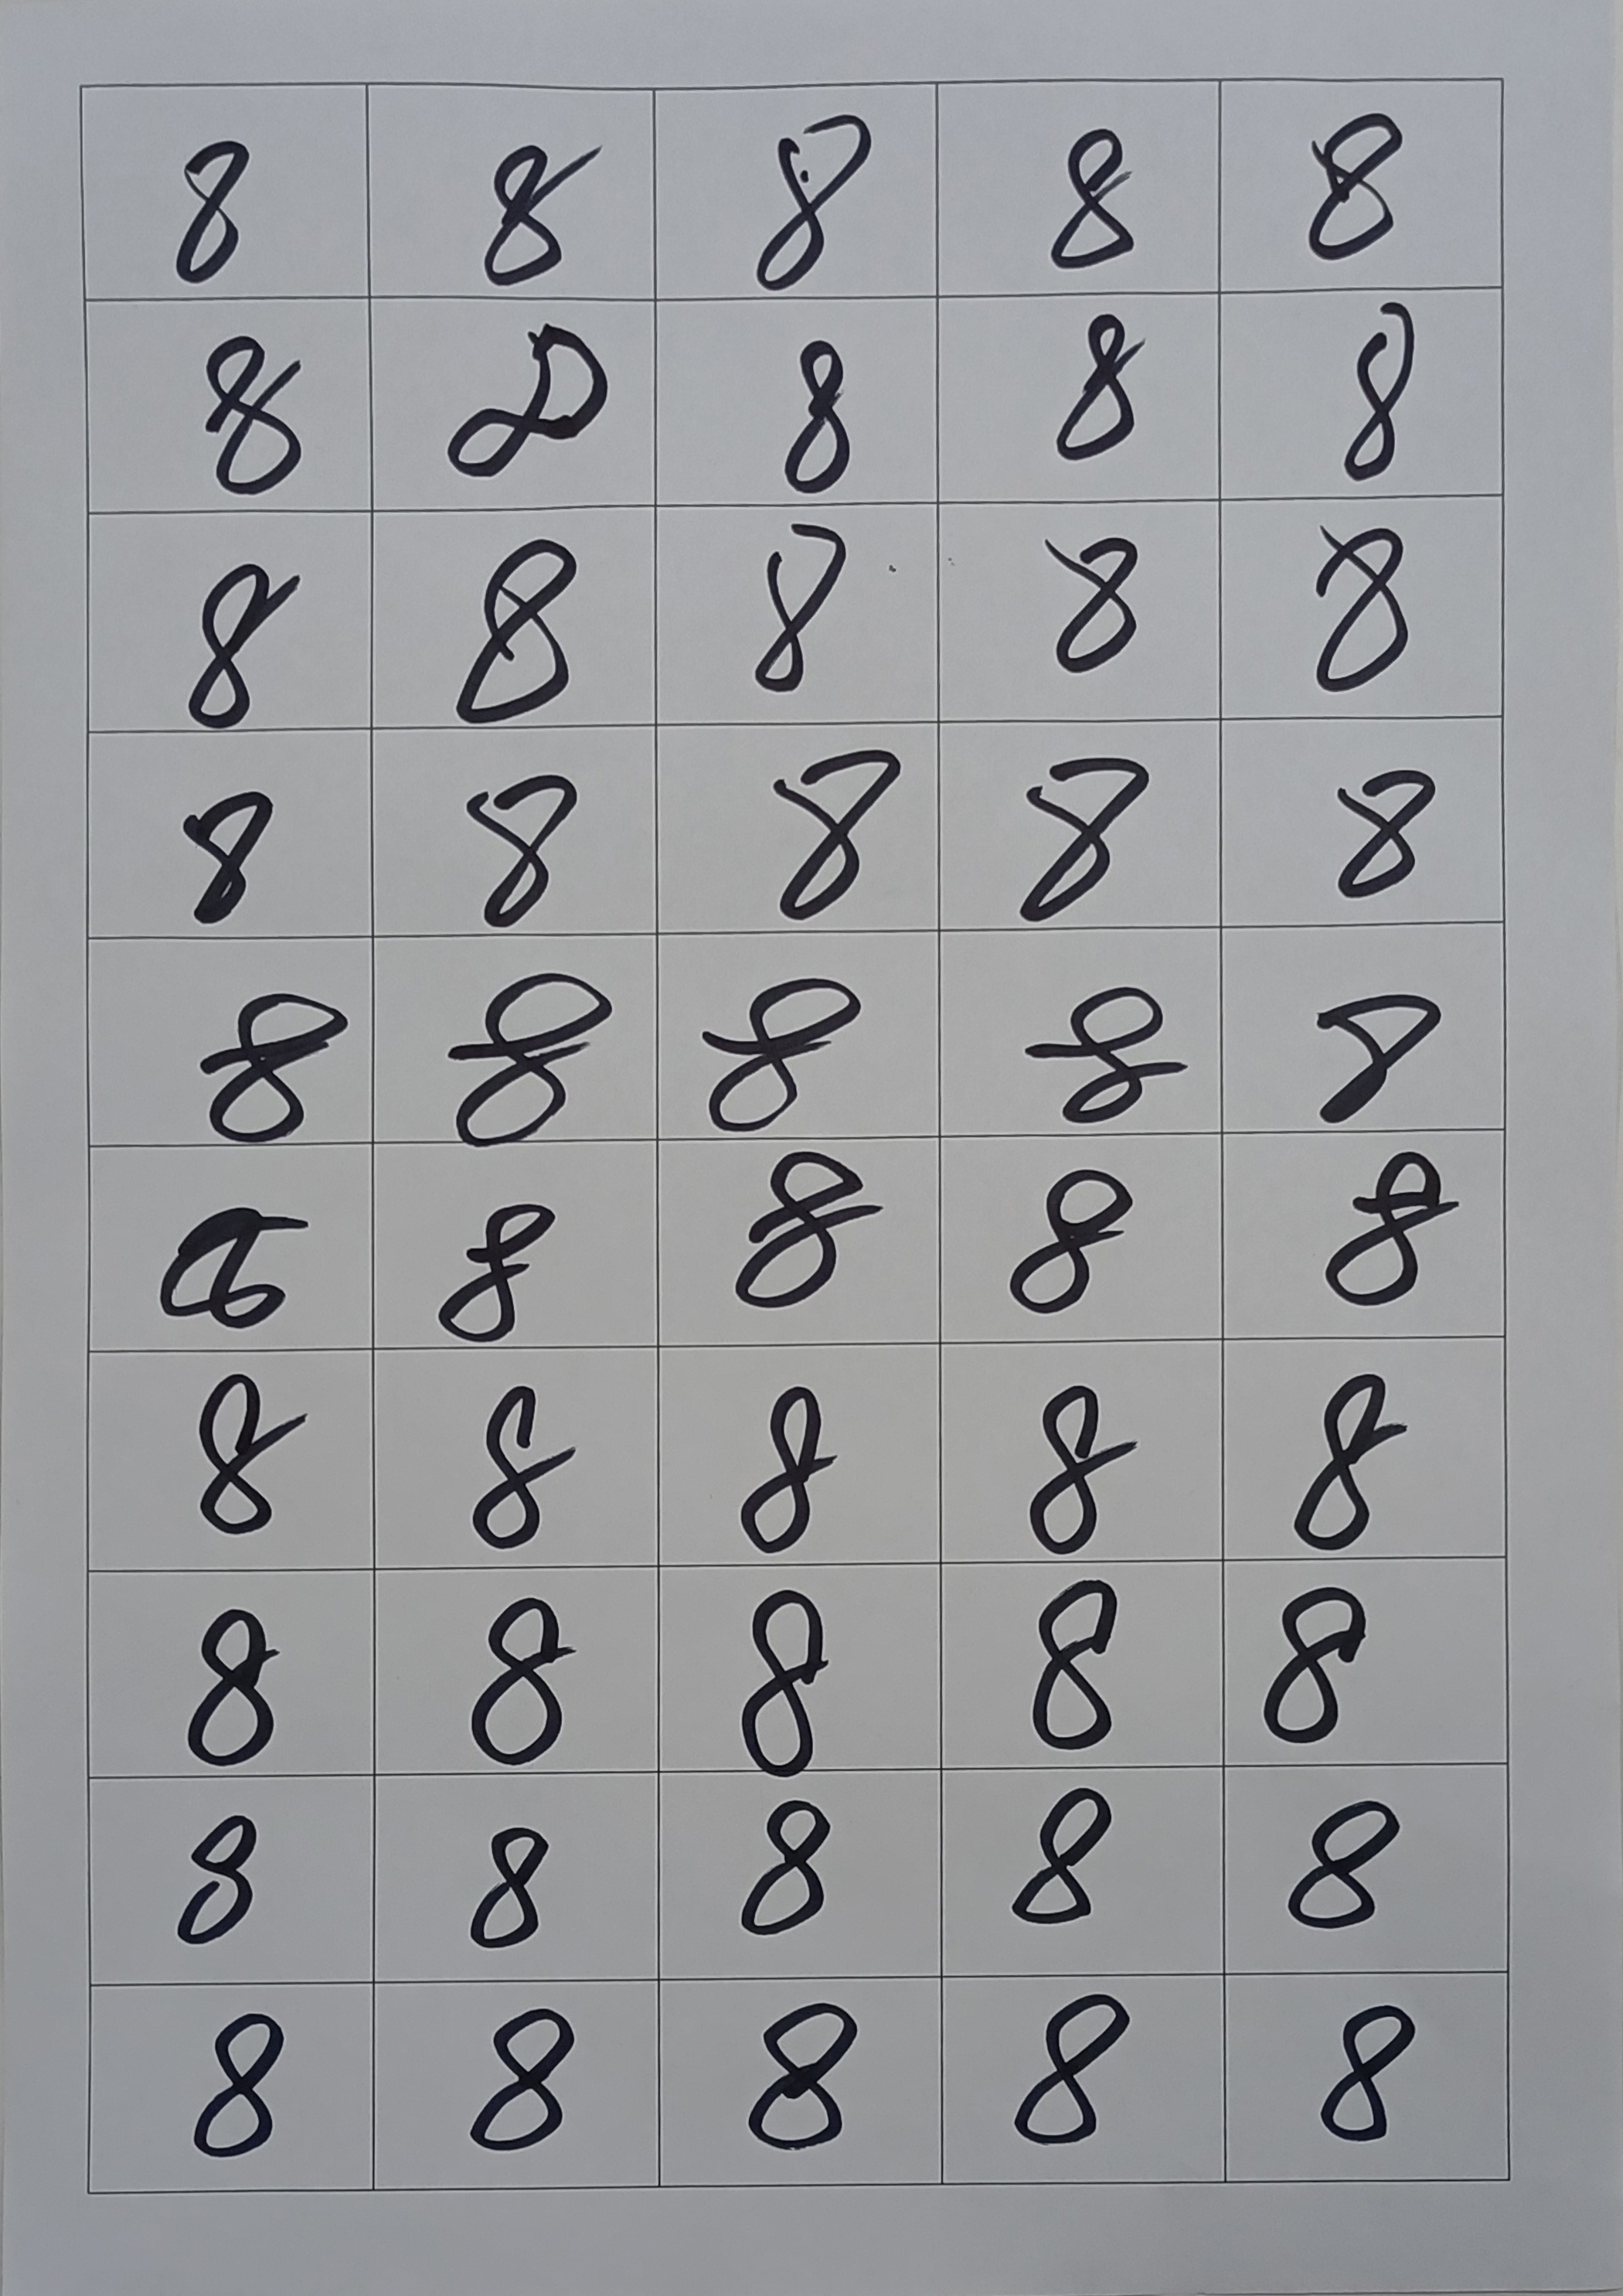 8 8 8 8 8
8 8 8 8 8
8 8 8 8 8
8 8 8 8 8
8 8 8 8 8
8 8 8 8
8 8 8 8 8
8 8 8 8 8
8 8 8 8 8
8 8 8 8 8